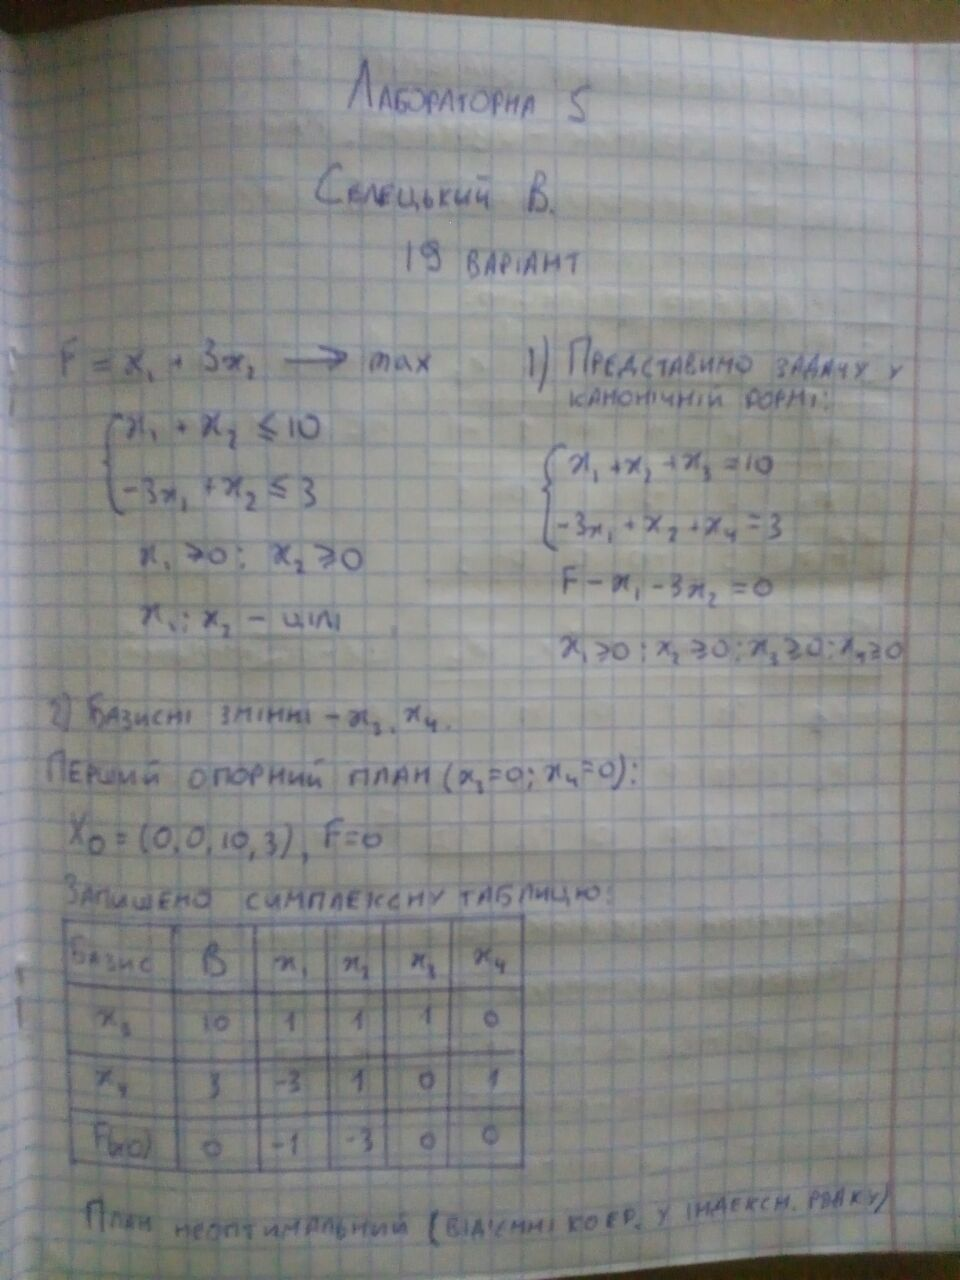 Лабораторна 5
Селецький В.
19 варіант
F = x₁ + 3x₂ → max
x₁ + x₂ ≤ 10
-3x₁ + x₂ ≤ 3
x₁ ≥ 0; x₂ ≥ 0
x₁; x₂ - цілі
1) Представимо задачу у
канонічній формі:
x₁ + x₂ + x₃ = 10
-3x₁ + x₂ + x₄ = 3
F - x₁ - 3x₂ = 0
x₁ ≥ 0; x₂ ≥ 0; x₃ ≥ 0; x₄ ≥ 0
2) Базисні змінні - x₃, x₄.
Перший опорний план (x₃=0; x₄=0):
X₀ = (0, 0, 10, 3), F=0
Запишемо симплексну таблицю:
Базис B x₁ x₂ x₃ x₄
x₃ 10 1 1 1 0
x₄ 3 -3 1 0 1
F(x0) 0 -1 -3 0 0
План неоптимальний (від'ємні коеф. у індексн. рядку)